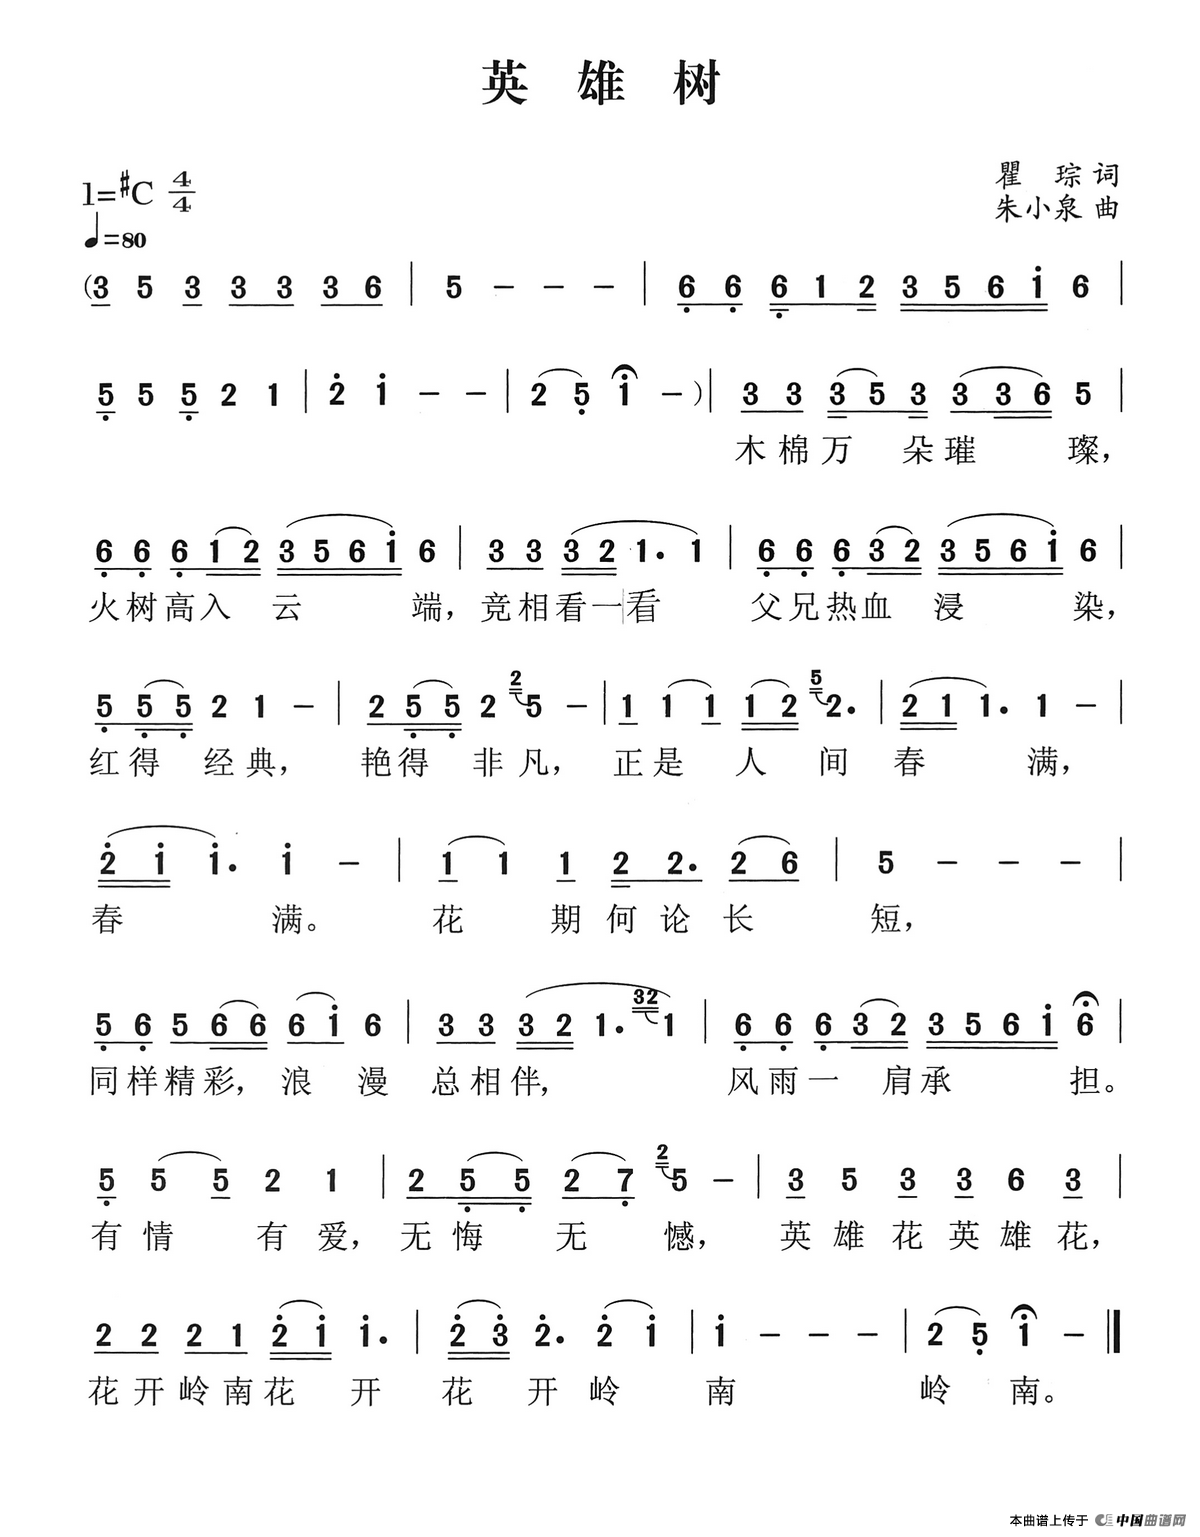 英雄树
1=#C 4/4
瞿琮词
朱小泉曲
♩=80
(3 5 3 3 3 3 6 | 5 - - - | 6 6 6 1 2 3 5 6 i 6 |
5 5 5 2 1 | 2 i - - | 2 5 i -)| 3 3 3 5 3 3 3 6 5 |
木棉万朵璀璨，
6 6 6 1 2 3 5 6 i 6 | 3 3 3 2 1. 1 | 6 6 6 3 2 3 5 6 i 6 |
火树高入云端，竞相看一看 父兄热血浸染，
5 5 5 2 1 - | 2 5 5 2 2 5 - | 1 1 1 1 2 5 2. | 2 1 1. 1 - |
红得经典，艳得非凡，正是人间春满，
2 i i. i - | 1 1 1 2 2. 2 6 | 5 - - - |
春满。花期何论长短，
5 6 5 6 6 6 i 6 | 3 3 3 2 1. 32 1 | 6 6 6 3 2 3 5 6 i 6 |
同样精彩，浪漫总相伴，风雨一肩承担。
5 5 5 2 1 | 2 5 5 2 7 2 5 - | 3 5 3 3 6 3 |
有情有爱，无悔无憾，英雄花英雄花，
2 2 2 1 2 i i. | 2 3 2. 2 i | i - - - | 2 5 i - ‖
花开岭南花开花开岭南岭南。
本曲谱上传于 中国曲谱网